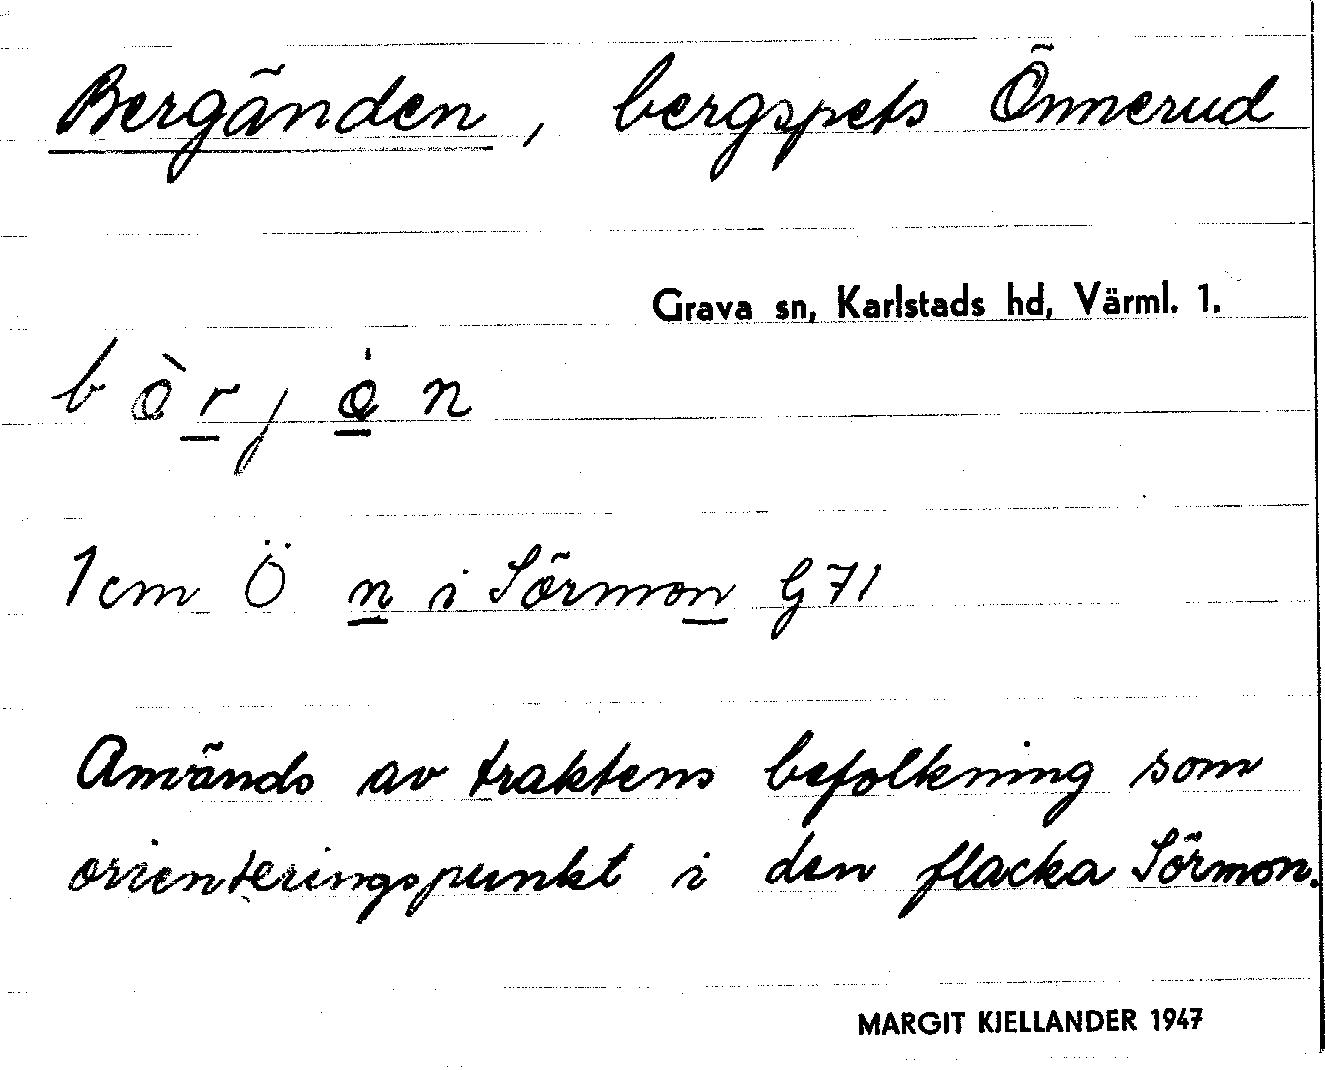 Bergänden, bergspets Önnerud
Grava sn, Karlstads hd, Värml. 1.
1 cm Ö n i Sörmon G 71
Används av traktens befolkning som
orienteringspunkt i den flacka Sörmon.
MARGIT KJELLANDER 1947